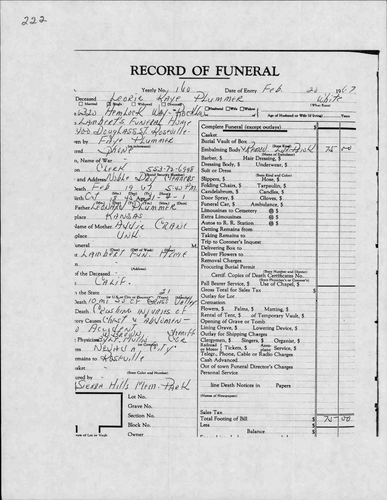 222
RECORD OF FUNERAL
Yearly No. 160 Date of Entry Feb. 20 1967
Deceased Leorie Kaye Plummer White
Married Single Widowed Divorced Husband Wife Widow of Age of Husband or Wife (if living) Years
6320 Hemlock Way - Rocklin
Lambert's Funeral Home
400 Douglas St. Roseville
Faye Plummer
Saint
in, Name of War
Clerk 553-72-6998
and Address Noble Dry Cleaners
Death Feb 19 67 5:40 P.M.
Father Leonard Plummer
place Kansas
Name of Mother Addie Crane
place Unk
Funeral M.
Lambert Fun. Home
of the Deceased
(Address)
Calif.
in the State 21
Death 10 mi. so of Grass Valley
Death Crushing injuries of
tory Causes Chest & Abdomen
Accident
Physician
Nevada City
emains to Roseville
asket
(State Color and Number)
ured by
Sierra Hills Mem. Park
Lot No.
Grave No.
Section No.
Block No.
Owner
Complete Funeral (except outlays) $
Casket
Burial Vault of Box
Embalming Body 75 00
(Name of Embalmer)
Barber, $ Hair Dressing, $
Dressing Body, $ Underwear, $
Suit or Dress
(State Kind and Color)
Slippers, $ Hose, $
Folding Chairs, $ Tarpaulin, $
Candelabrum, $ Candles, $
Door Spray, $ Gloves, $
Funeral Car, $ Ambulance, $
Limousines to Cemetery @ $
Extra Limousines @ $
Autos to R. R. Station @ $
Getting Remains from
Taking Remains to
Trip to Coroner's Inquest
Delivering Box to
Deliver Flowers to
Removal Charges
Procuring Burial Permit
Certif. Copies of Death Certificates No.
Pall Bearer Service, $ Use of Chapel, $
Gross Total for Sales Tax $
Outlay for Lot
Cremation
Flowers, $ Palms, $ Matting, $
Rental of Tent, $ of Temporary Vault, $
Opening of Grave or Tomb
Lining Grave, $ Lowering Device, $
Outlay for Shipping Charges
Clergymen, $ Singers, $ Organist, $
Tickets, $ Service, $
Telegr., Phone, Cable or Radio Charges
Cash Advanced
Out of town Funeral Director's Charges
Personal Service
line Death Notices in Papers
(Names of Newspapers)
Sales Tax
Total Footing of Bill $ 75 00
Less
Balance $